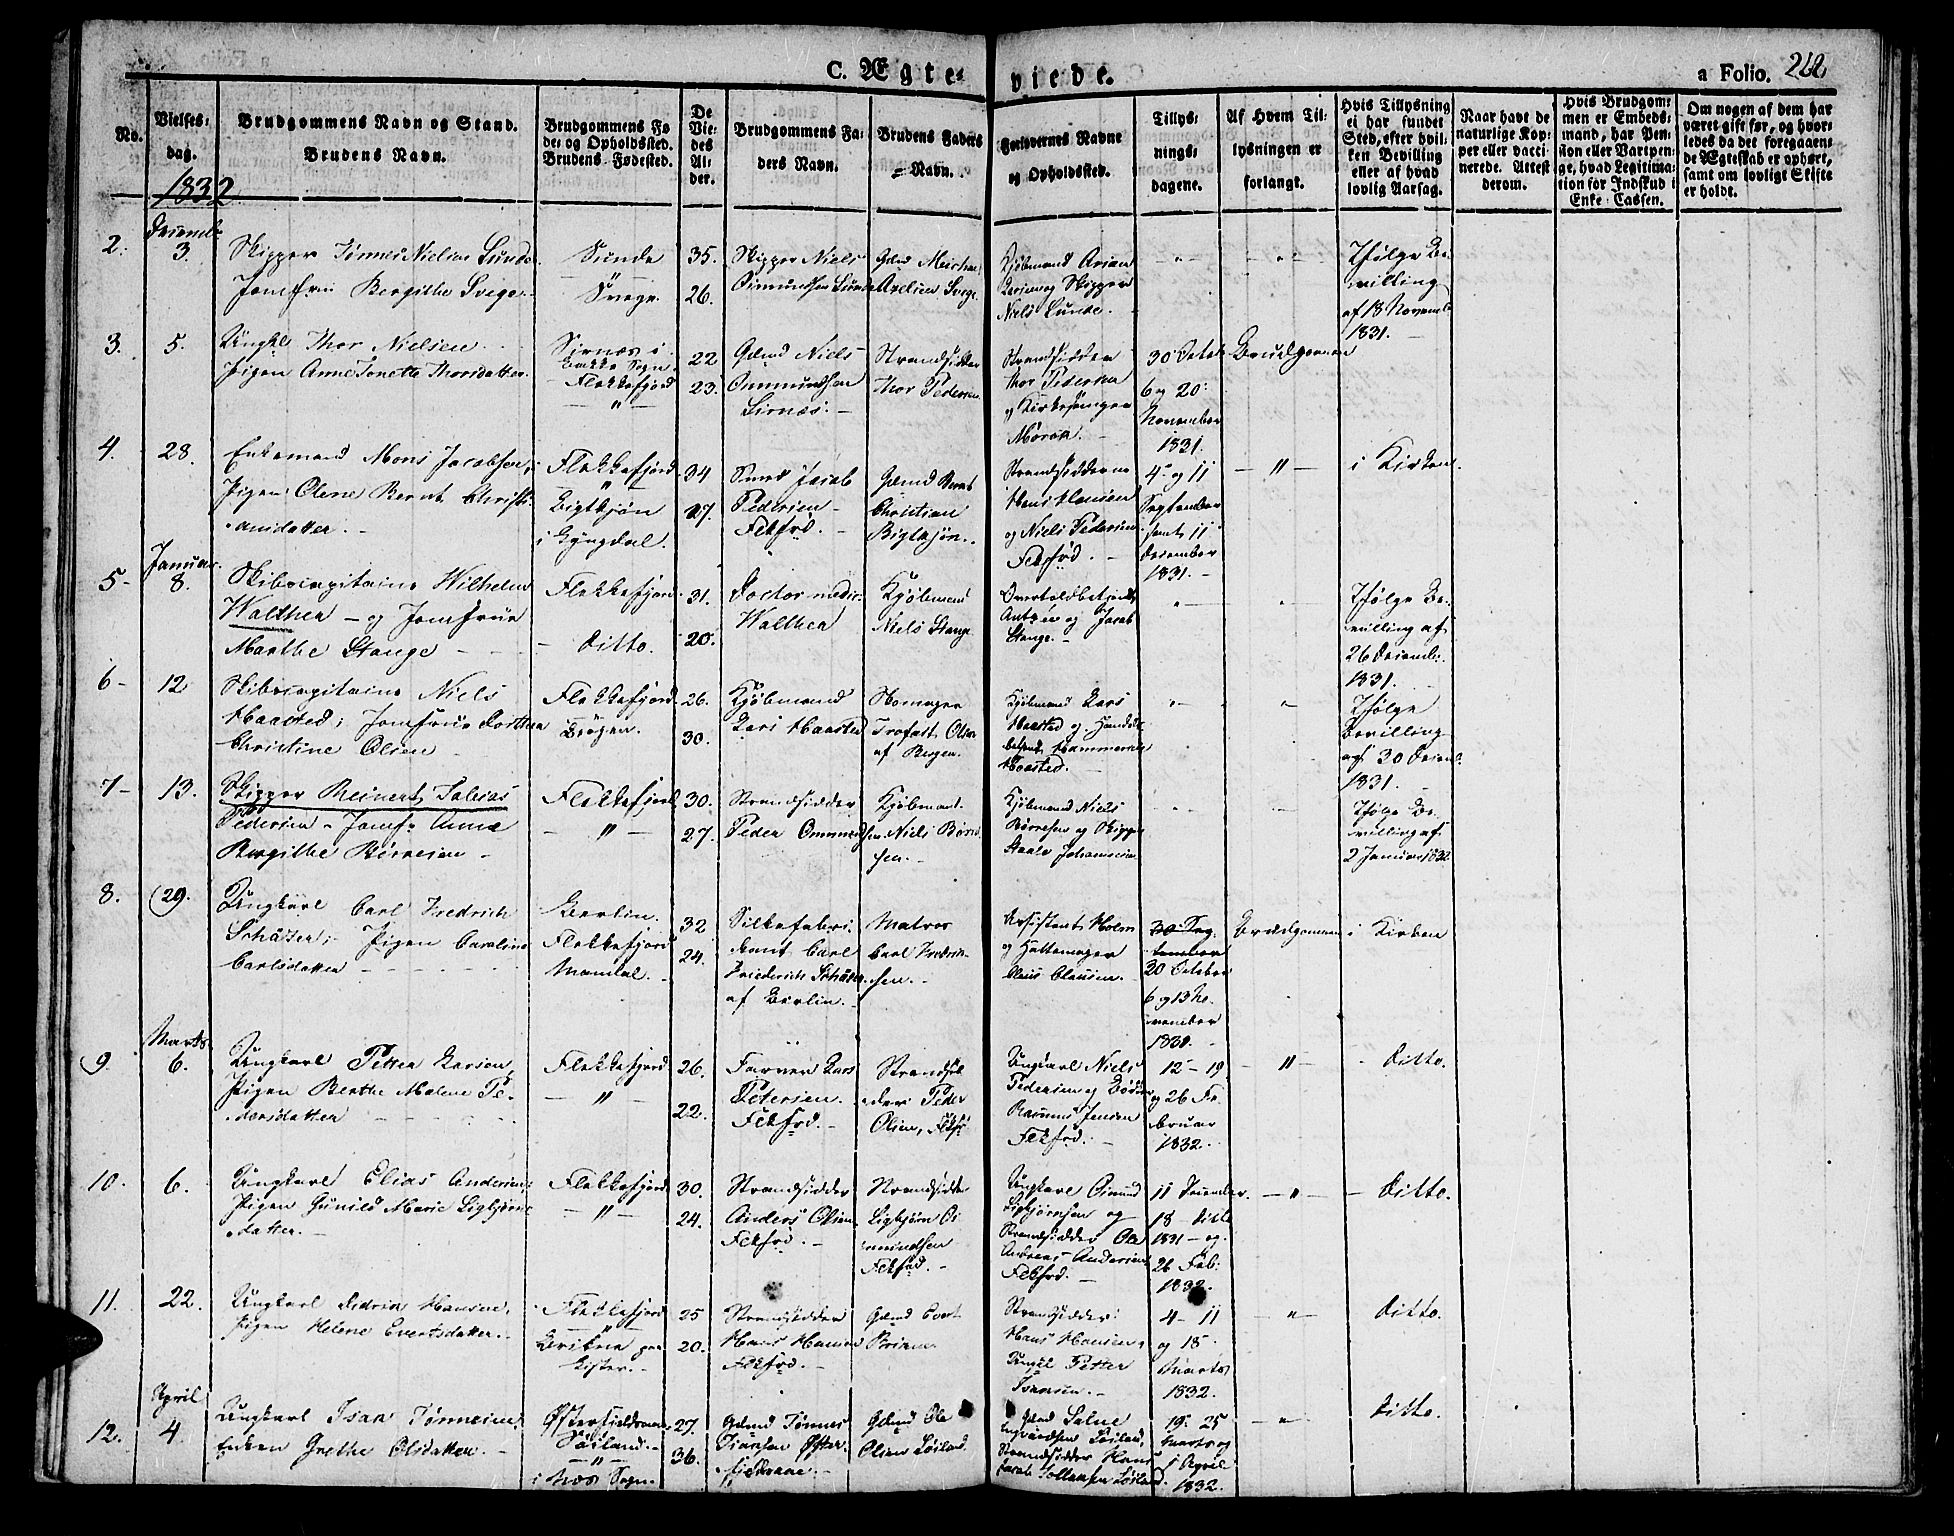 C. Ægte-
viede.
a Folio. 262
No.
Vielses-
dag.
Brudgommens Navn og Stand.
Brudens Navn.
Brudgommens Fø
de- og Opholdssted.
Brudens Fødested.
De
Vie-
des
Al-
der.
Brudgommens Fa-
ders Navn.
Brudens Faders
Navn.
Forlovernes Navne
og Opholdssted.
Tillys-
nings-
dagene.
Af Hvem Til-
lysningen er
forlangt.
Hvis Tillysning
ei har fundet
Sted, efter hvil-
ken Bevilling
eller af hvad
lovlig Aarsag.
Naar havt de
naturlige Kop-
per eller vacci-
nerede. Attest
derom.
Hvis Brudgom-
men er Embeds-
mand, har Pen-
sion eller Vartpen-
ge, hvad Legitima-
tion for Indskud i
Enke-Cassen.
Om nogen af dem har
været gift før, og hvor-
ledes da det foregaaen-
de Ægteskab er ophørt,
samt om lovligt Skifte
er holdt.
1832
2.
3.
Skipper Tønnes Nielsen Sunde
Jomfru Bergithe Svege
Sunde
"
Svege
35.
26.
Skipper Niels
Sunde
Gmd Michael
Axelsen Svege
Kjøbmand
og Skipper
Niels Sunde.
Ifølge Be-
villing
af 18 Novemb
1831.
3.
5.
Ungkl Thor Nielsen
Pigen Anne Tonette Thorsdatter
Sirnæs i
Bakke Sogn
Flekkefjord
22
23.
Gmd Niels
Ommundsen
Sirnæs.
Strandsidder
Thor Pedersen
Strandsidder
Thor Pedersen
og Kirkesanger
30 Octob
6 og 20
November
1831.
Brudgommen
4.
28.
Enkemand Mons Jacobsen,
Pigen Olene Bernt Christi-
ansdatter.
Flekkefjord
"
Bigtkjøn
i Qvinesdal.
34
27.
Smed Jacob
Pedersen
Fekfrd.
Gmd Bernt
Christian
Bigtkjøn.
Strandsidderne
Hans Hansen
og Niels Pedersen
Fekfrd.
4 og 11
September
samt 11
December
1831.
"
i Kirken.
Januar
5
8.
Skibscapitaine Wilhelm
Walther og Jomfrue
Marthe Stange
Flekkefjord
Ditto.
31.
20.
Doctor medic
Walther
Kjøbmand
Niels Stange
Overtoldbetjent
og Jacob
Stange.
Ifølge Be-
villing af
26 Decemb.
1831.
6
12
Skibscapitaine Niels
Haasted, Jomfrue Dorthea
Christine Olsen
Flekkefjord
Bergen.
26.
30.
Kjøbmand
Lars Haasted
Skomager
Trofast Olsen
af Bergen.
Kjøbmand Lars
Haasted og Handels
Haasted.
Ifølge
Bevilling
af 30 Decemb.
1831.
7
13.
Skipper Reinert Tobias
Pedersen Jomf. Anna
Birgithe Børresen
Flekkefjord
"
30.
27.
Strandsidder
Peder Ommund
sen
Kjøbmand
Niels Børre
sen.
Kjøbmand Niels
Børresen og Skipper
Staale Johannesen
Ifølge Be-
villing af
2 Januar 1832
8.
29.
Ungkarl Carl Fredrich
Schäfer; Pigen Caroline
Carlsdatter
Berlin.
Flekkefjord
Mandal.
32
24.
Silkefabri-
kant Carl
Friederich Schäfer
af Berlin.
Matros
Carl Fredrik-
sen.
Assistent Holm
og Hattemager
Claus Clausen.
30 Sep-
tember
30 October
6 og 13 No-
vember
Brudgommen
i Kirken
Marts
9.
6.
Ungkarl Petter Larsen,
Pigen Berthe Malene Pe-
dersdatter
Flekkefjord
"
26.
22.
Farver Lars
Petersen.
Fekfrd.
Strandsid
der Peder
Olsen, Fekf
Ungkarl Niels
Pedersen og
Rasmus Jensen
Fekfrd.
12 - 19
og 26 Fe-
bruar
1832.
"
Ditto.
10.
6.
Ungkarl Elias Andersen;
Pigen Gunild Marie Ligbjørns
datter.
Flekkefjord
"
30.
24.
Strandsidder
Anders Olsen
Fekfrd.
Strandsidder
Ligbjørn
Fekfrd.
Ungkarl
Ligbjørnsen og
Strandsidder Ole
Andreas Andersen
Fekfrd.
11 December
18 - ditto
1831 - og
26 Feb:
1832.
"
Ditto.
11.
22.
Ungkarl Didrik Hansen,
Pigen Helene Evertsdatter.
Flekkefjord
"
Lister.
25
20.
Strandsidder
Hans Hansen
Fekfrd.
Gmd Evert
Strandsidder
Hans Hansen,
Ungkl Petter
4 - 11
og 18
Marts
1832.
"
Ditto.
April
12.
4.
Ungkarl Isak Tønnesen;
Enken Grethe Olsdatter.
"
i Næs Sogn.
27.
36.
Gmd Tønnes
Gmd Ole
Olsen
Gmd Salve
Strandsidder Hans
19 25
Marts og
1 April
1832.
"
Ditto.